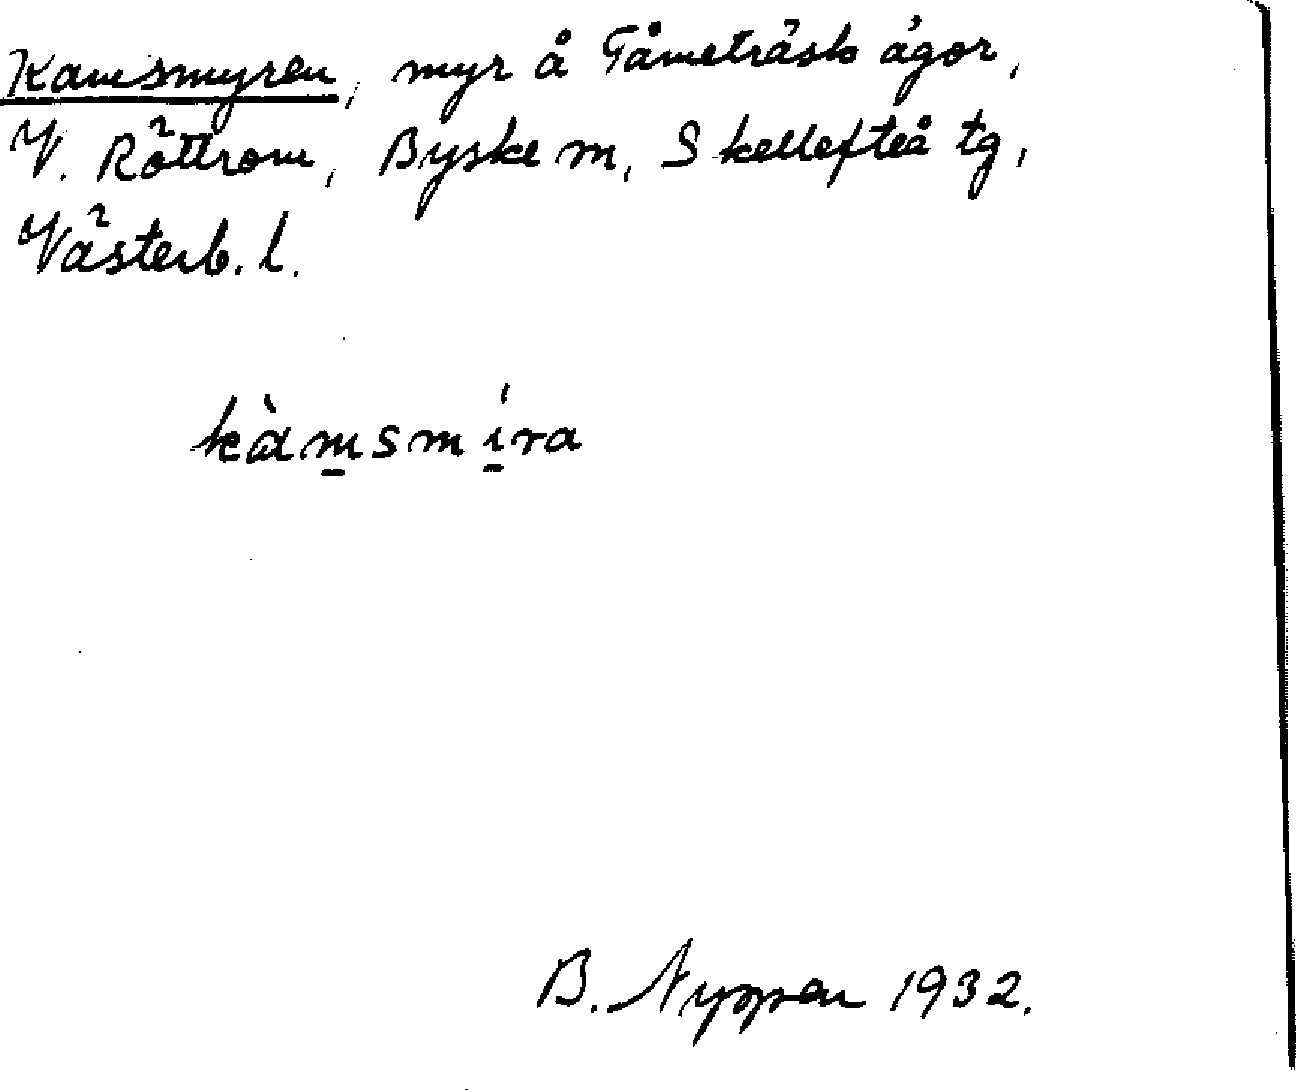 Kamsmyren, myr å Tåmeträsk ägor,
V. Röttrom, Byske m, Skellefteå tg,
Västerb. l.
kàmsmíra
B. Nyppen 1932.